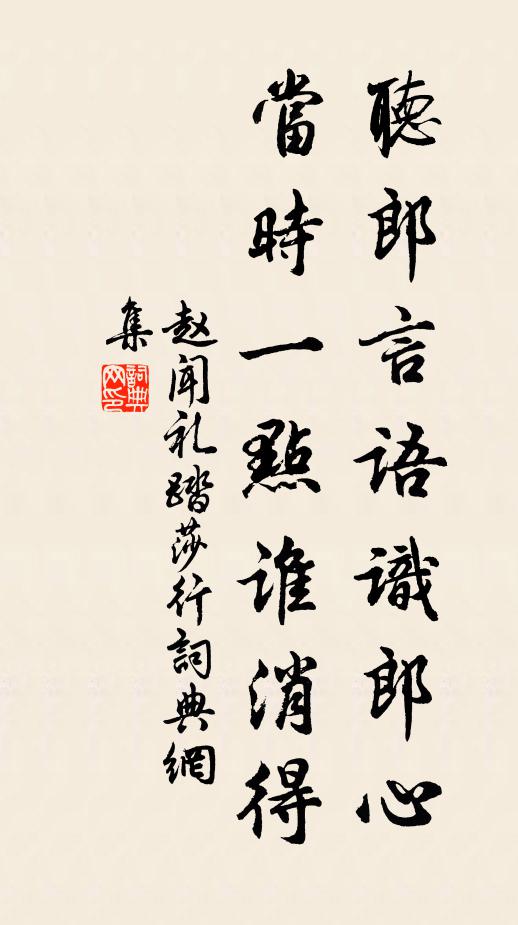 聽郎言語識郎心
當時一點誰消得
赵闻礼踏莎行詞典網
集
詞典
网印